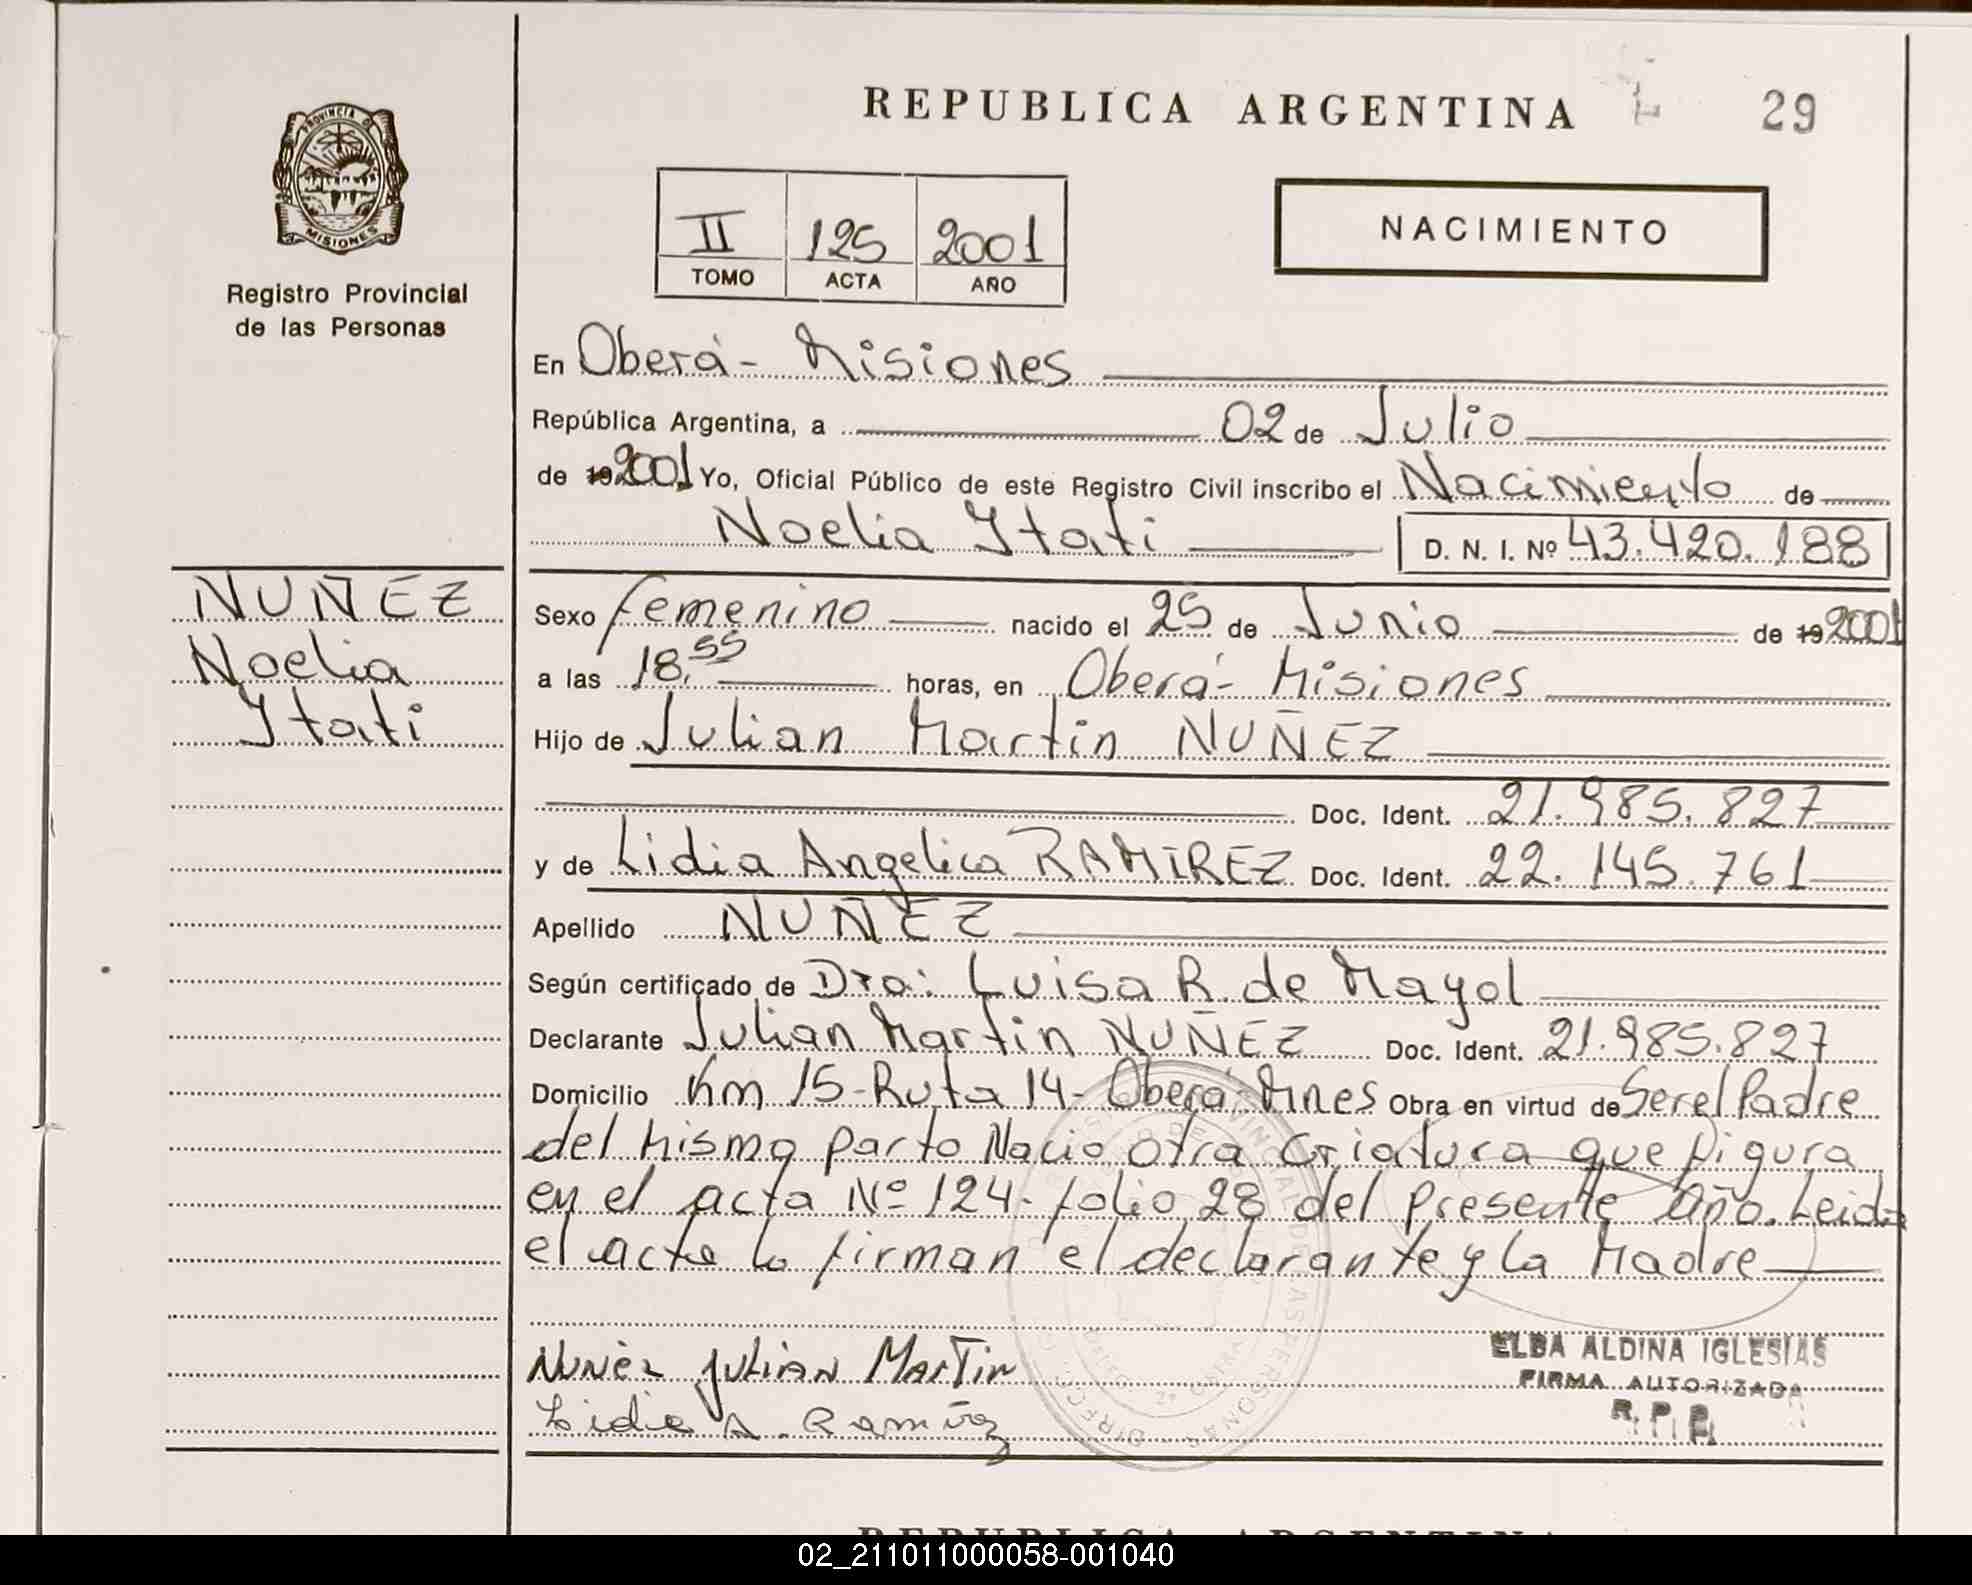 REPUBLICA ARGENTINA
29
PROVINCIA DE
MISIONES
Registro Provincial
de las Personas
II 125 2001
TOMO ACTA AÑO
NACIMIENTO
En Oberá - Misiones
República Argentina, a 02 de Julio
de 19 2001 Yo, Oficial Público de este Registro Civil inscribo el Nacimiento de
Noelia Itati D. N. I. Nº 43.420.188
NUÑEZ
Noelia
Itati
Sexo femenino nacido el 25 de Junio de 19 2001
a las 18,55 horas, en Oberá - Misiones
Hijo de Julian Martin NUÑEZ
Doc. Ident. 21.985.827
y de Lidia Angelica RAMIREZ Doc. Ident. 22.145.761
Apellido NUÑEZ
Según certificado de Dra: Luisa R. de Mayol
Declarante Julian Martin NUÑEZ Doc. Ident. 21.985.827
Domicilio Km 15 - Ruta 14 - Oberá - Mnes Obra en virtud de Ser el Padre
del mismo parto Nacio otra criatura que figura
en el acta Nº 124 - folio 28 del presente año. Leida
el acta lo firman el declarante y la Madre
Nuñez Julian Martin
Lidia A. Ramirez
ELBA ALDINA IGLESIAS
FIRMA AUTORIZADA
R. P. P.
REPUBLICA ARGENTINA
02_211011000058-001040